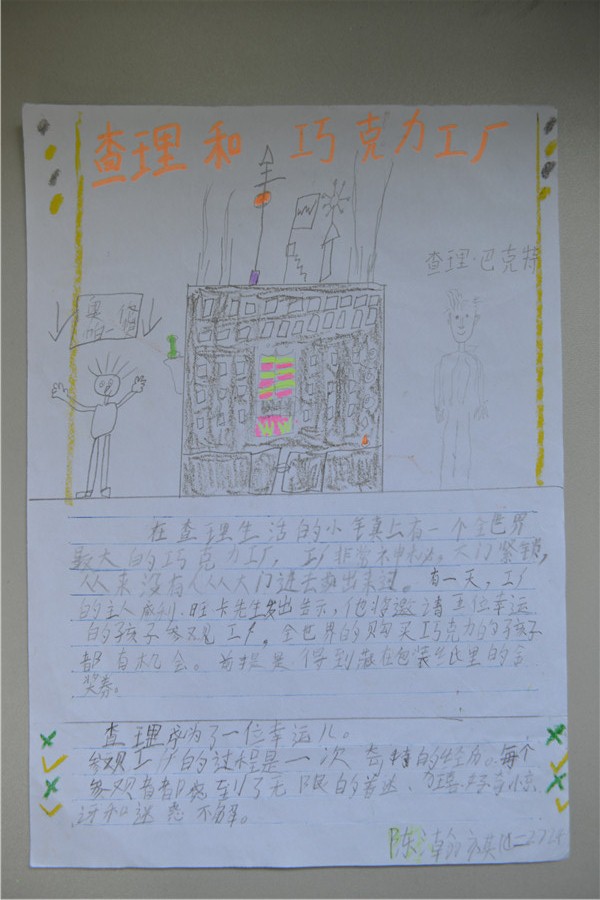 查理和 巧克力工厂
查理·巴克特
奥 修
帕 - 姆
WW
在查理生活的小镇上有一个全世界
最大的巧克力工厂,工厂非常神秘,大门紧锁,
从来没有人从大门进去或出来过。有一天,工厂
的主人威利·旺卡先生发出告示,他将邀请五位幸运
的孩子参观工厂,全世界的购买巧克力的孩子
都有机会。前提是得到藏在包装纸里的金
奖券。
查理成为了一位幸运儿。
参观工厂的过程是一次奇特的经历。每个
参观者都感到了无限的喜悦、
讶和迷惑不解。
陈瀚